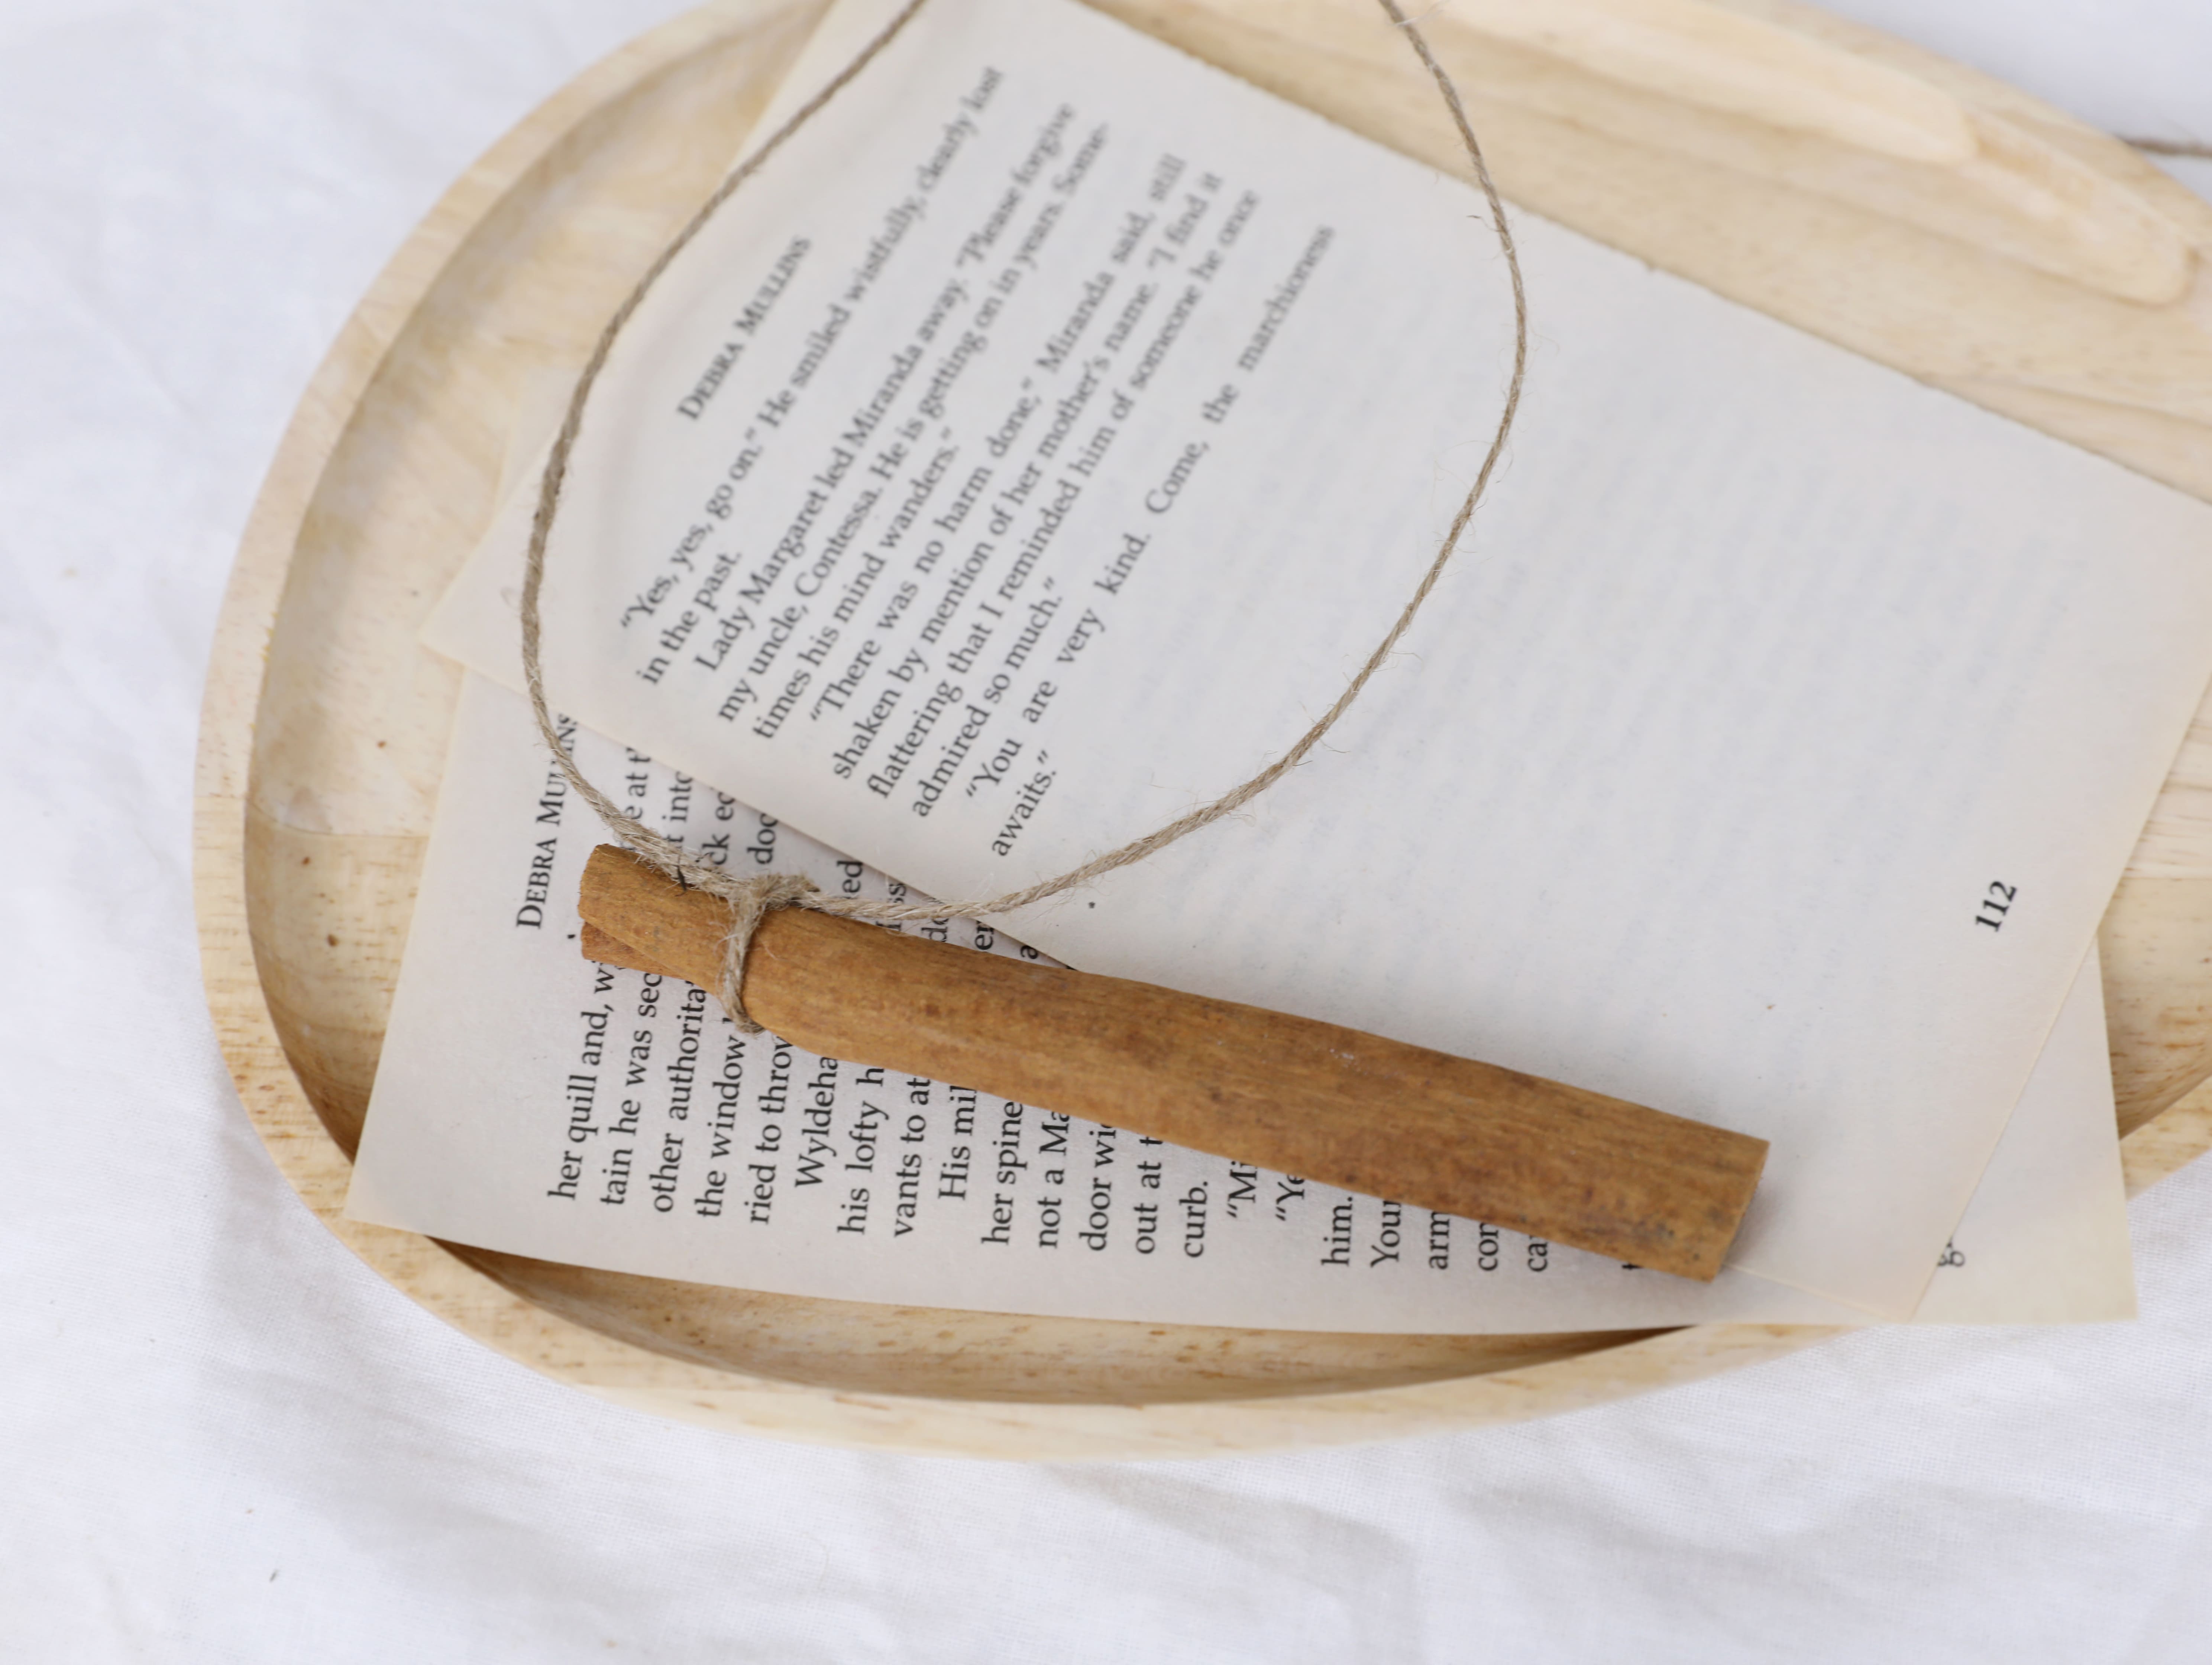 DEBRA MULLINS
“Yes, yes, go on.” He smiled wistfully, clearly lost
in the past.
Lady Margaret led Miranda away. “Please forgive
my uncle, Contessa. He is getting on in years. Some-
times his mind wanders.”
“There was no harm done,” Miranda said, still
shaken by mention of her mother’s name. “I find it
flattering that I reminded him of someone he once
admired so much.”
“You are very kind. Come, the marchioness
awaits.”
112
DEBRA MULLINS
her quill and, at
tain he was into
other
the window
ried to
his lofty
vants to at
His
her spine
not a
door
out at
curb.
him.